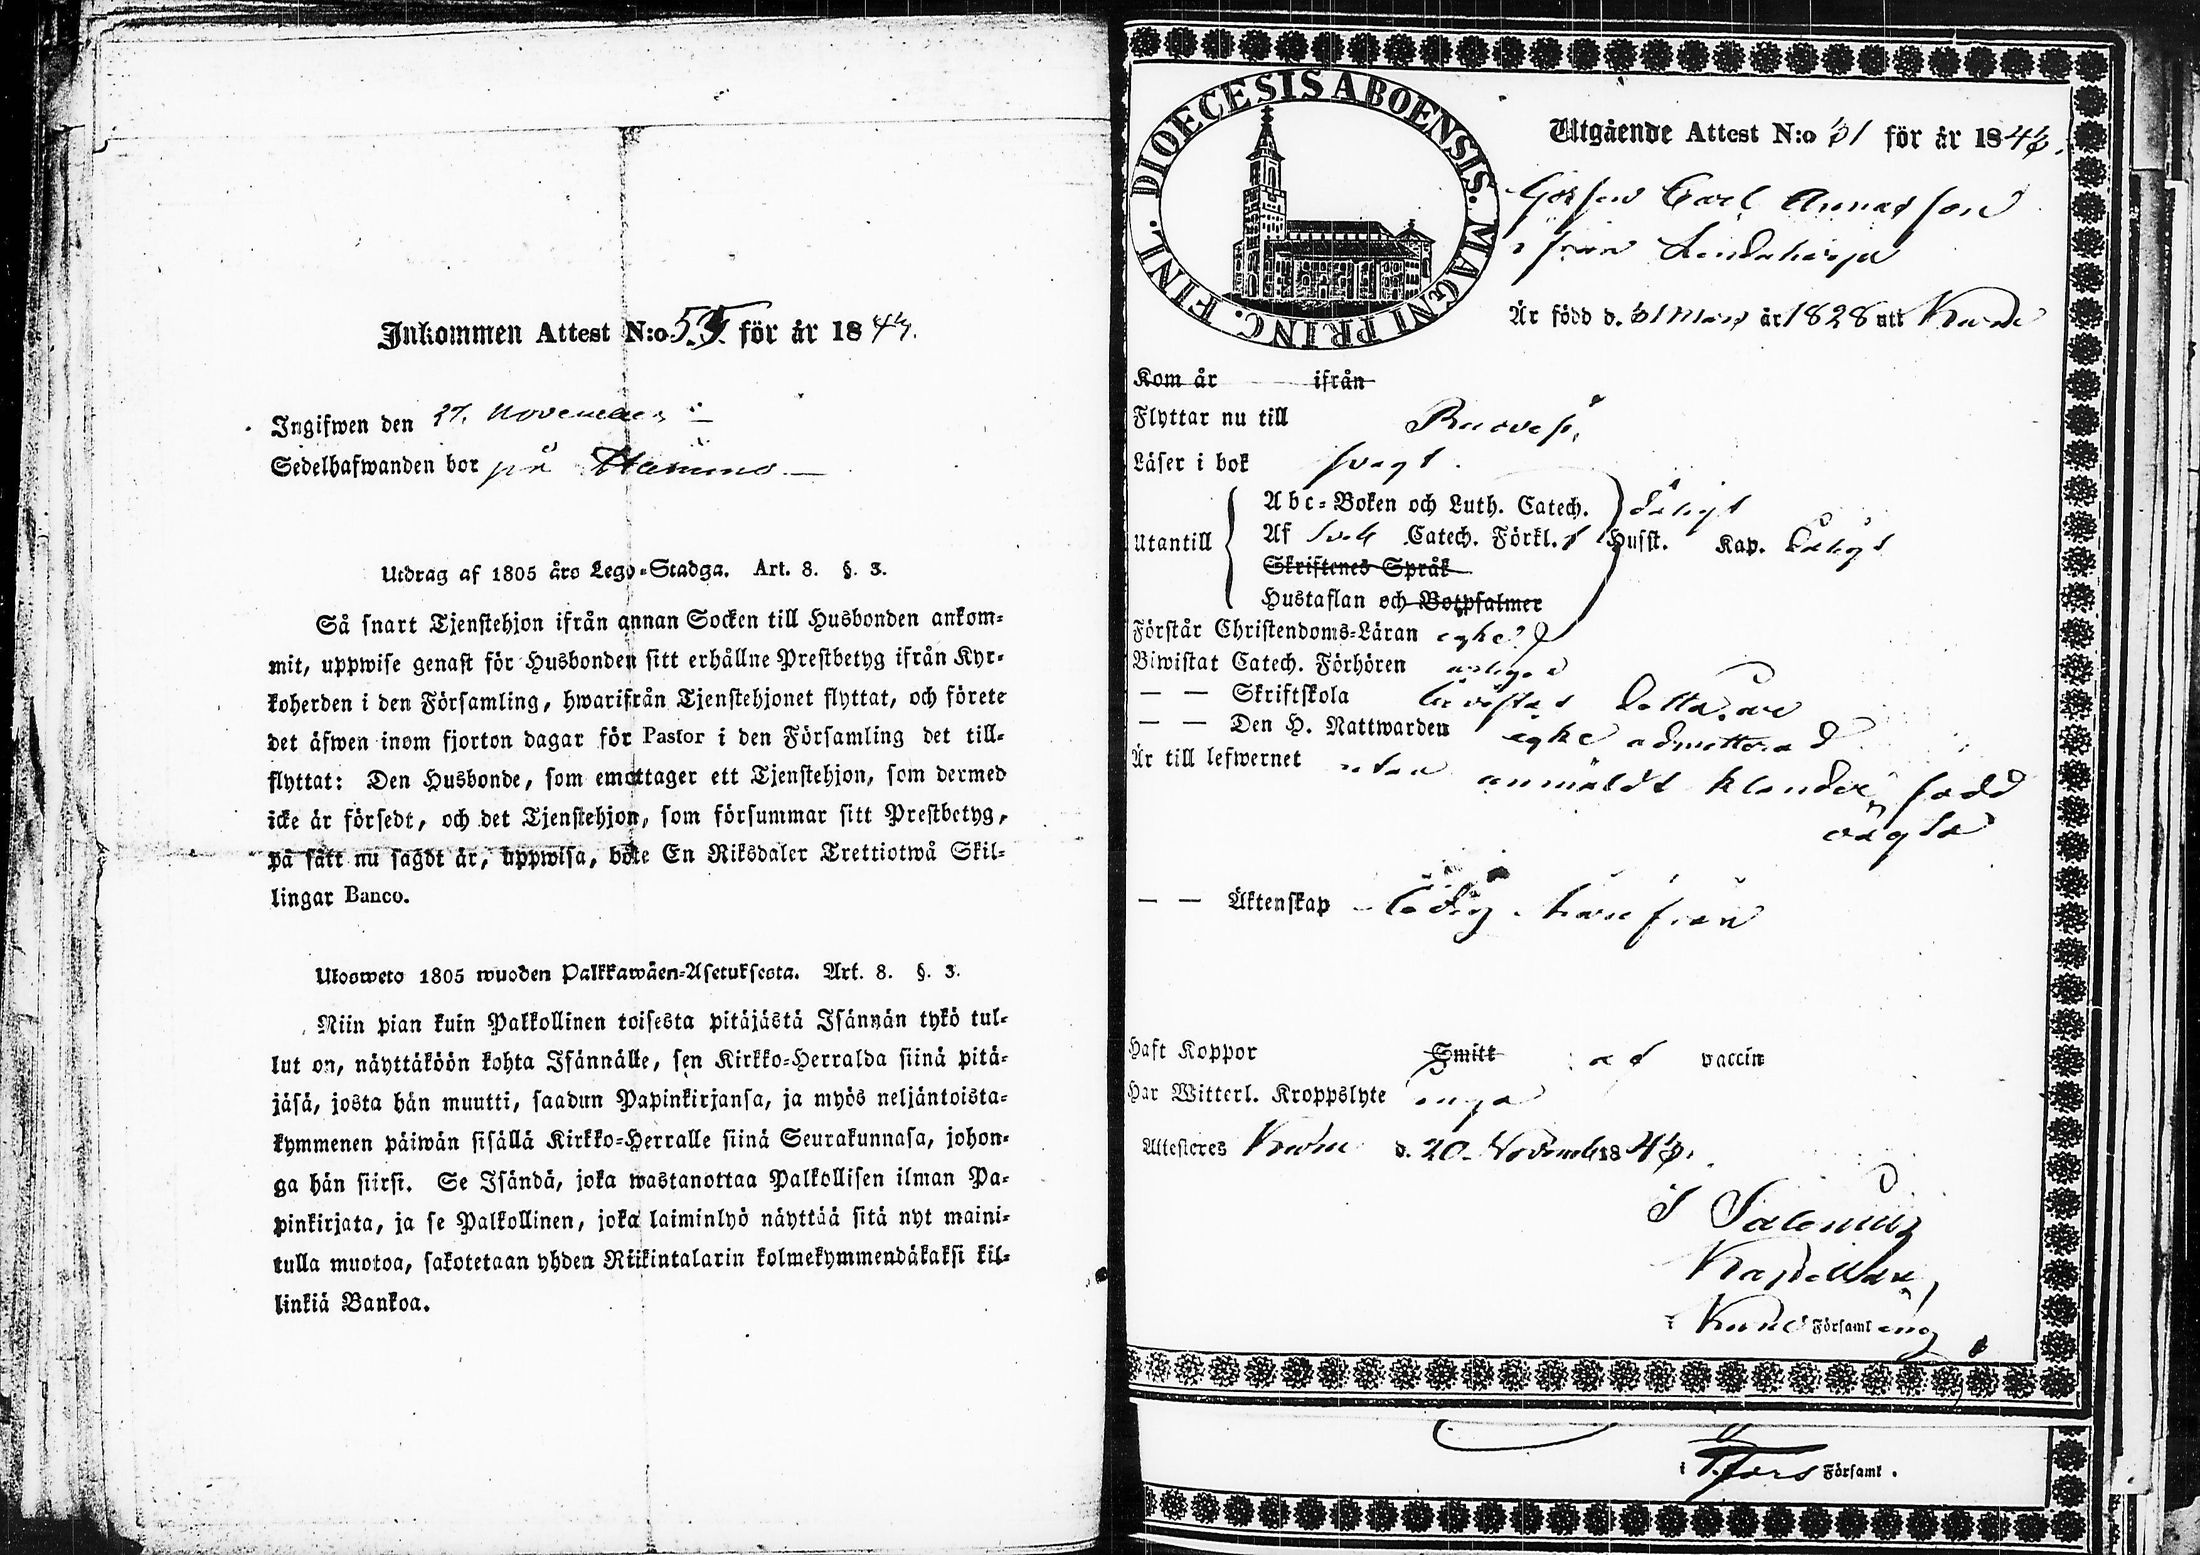 Inkommen Attest N:o 55. för år 1843.
Ingifwen den 27. November
Sedelhafwanden bor på
Utdrag af 1805 års Lego-Stadga. Art. 8. §. 3.
Så snart Tjenstehjon ifrån annan Socken till Husbonden ankom-
mit, uppwise genast för Husbonden sitt erhållne Prestbetyg ifrån Kyr-
koherden i den Församling, hwarifrån Tjenstehjonet flyttat, och förete
det äfwen inom fjorton dagar för Pastor i den Församling det till-
flyttat: Den Husbonde, som emottager ett Tjenstehjon, som dermed
icke är försedt, och det Tjenstehjon, som försummar sitt Prestbetyg,
på sätt nu sagdt är, uppwisa, böte En Riksdaler Trettiotwå Skil-
lingar Banco.
Ulosweto 1805 wuoden Palkkawäen-Asetuksesta. Art. 8. §. 3.
Niin pian kuin Palkollinen toisesta pitäjästä Isännän tykö tul-
lut on, näyttäköön kohta Isännälle, sen Kirkko-Herralda siinä pitä-
jäsä, josta hän muutti, saadun Papinkirjansa, ja myös neljäntoista-
kymmenen päiwän sisällä Kirkko-Herralle siinä Seurakunnasa, johon-
ga hän siirsi. Se Isändä, joka wastanottaa Palkollisen ilman Pa-
pinkirjata, ja se Palkollinen, joka laiminlyö näyttää sitä nyt maini-
tulla muotoa, sakotetaan yhden Riikintalarin kolmekymmendäkaksi kil-
linkiä Bankoa.
DIOECESIS ABOENSIS. MAGNI PRINC. FINL.
Utgående Attest N:o 31 för år 1843.
Gossen Carl Annasson
ifrån
Är född d. 31 Mars år 1828 utt
Kom år ifrån
Flyttar nu till
Läser i bok svagt.
Abc-Boken och Luth. Catech. dåligt
Utantill Af Catech. Förkl. Husst. Kap. dåligt
Skriftenes Språk
Hustaflan och Botpsalmer
Förstår Christendoms-Läran
Biwistat Catech. Förhören
— — Skriftskola bevistat detta år
— — Den H. Nattwarden admitterad
Är till lefwernet utan anmäldt klander, född
oägta
— — Äktenskap ledig härifrån
Haft Koppor Smitt af vaccin
Har Witterl. Kroppslyte inga
Attesteres d. 20. November 1843.
Kapellan
i Församling
i Församl.